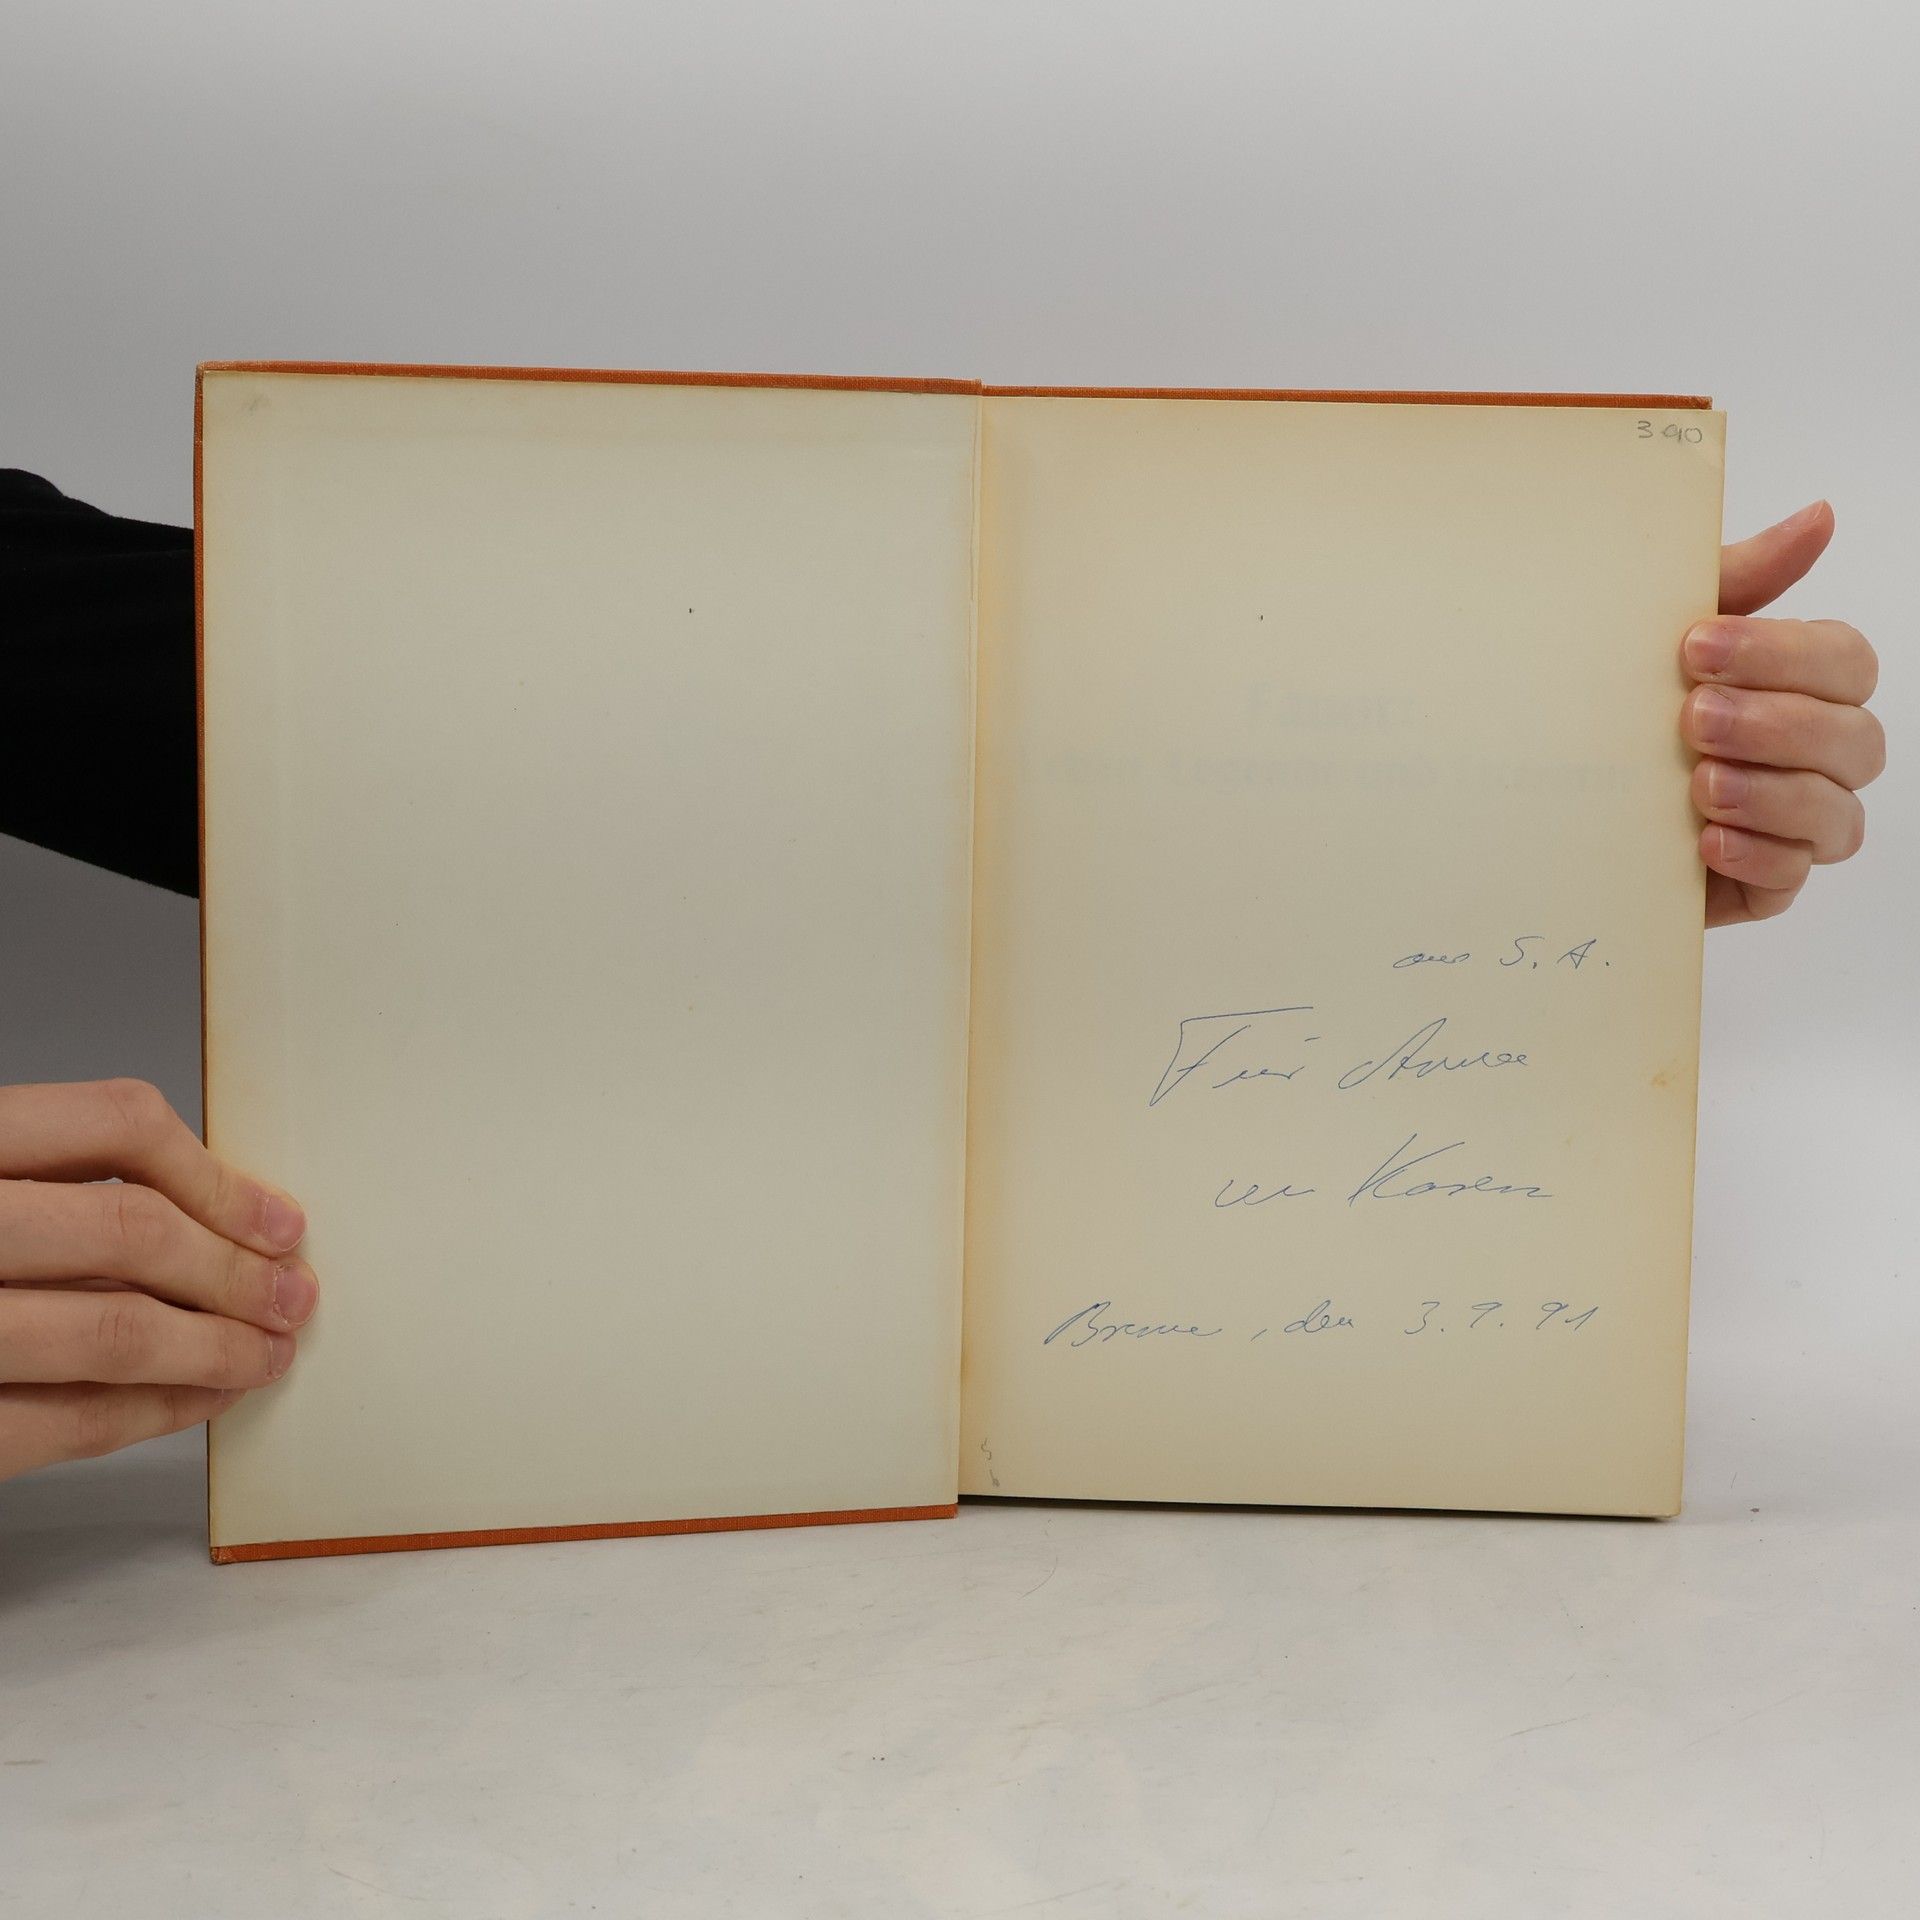 3 90
aus S. A.
Für Anna
von Karen
Breme, den 3. 9. 91